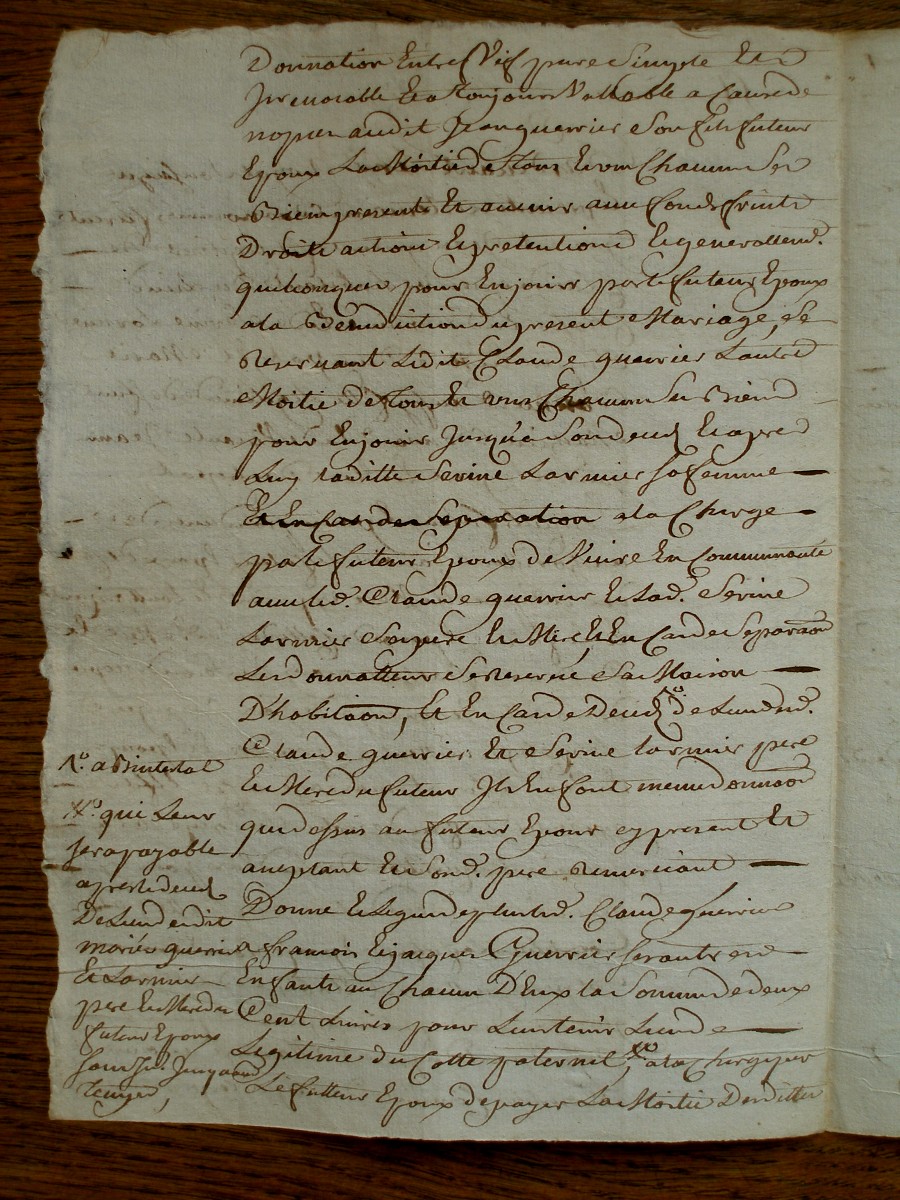 Donnation Entre Vif pure Simple Et
Jrrevocable Et a Toujours Vallable a Cause de
nopces audit Jean guerrier Son fils futeur
Epoux La Moitié de tous Et un Chacun Ses
Biens present Et avenir aux fonds fruits
Droits actions Et pretentions Et generallem.t
quelconques pour En jouir par le futeur Epoux
a la Benediction du present Mariage, Se
Reservant Ledit Claude guerrier L'autre
Moitié de tous Et uns Chacun Ses Biens
pour En jouir Jusqu'a Son decd Et apres
Luy laditte Sevine Larmier Sa femme
Et En Cas de Separation a la Cherge
par le futeur Epoux de Vivre En Communauté
avec led. Claude guerrier Et Lad. Sevine
Larmier Ses pere Et Mere, Et En Cas de Separaon
Les donnatteurs Se Reserve Sa Maison
D'habitaon, Et En Cas de Deced de Lun d.
Claude guerrier Et Sevine larmier pere
Et Mere du futeur Jls En font meme donnaon
que dessus au futeur Epoux cy present Et
aceptant Et Sond. pere Remerciant
Donne Et Legue de plus led. Claude Guerrier
a francois Et jacques Guerrier Ses autres
Enfants au Chacun D'Eux la Somme de deux
Cent Livres pour Leur tenir Lieu de
Legitime du Cotte paternel, a la Cherge par
Le futteur Epoux de payer La Moitié Desdittes
1.o abintestat
X.o qui Leur
Sera payable
apres le deced
De Lun desdit
mariés guerrier
Et Larmier
pere Et Mere du
futeur Epoux
Sans